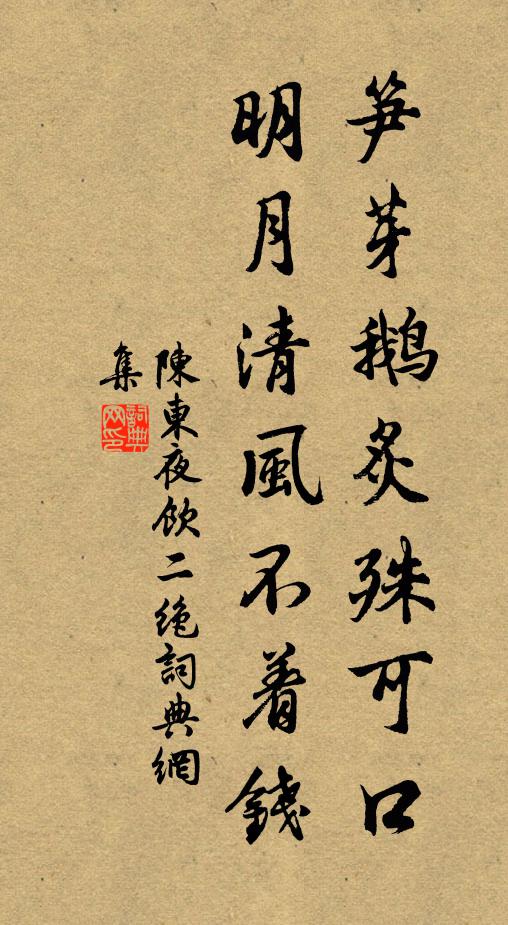 笋芽鹅炙殊可口
明月清風不着錢
陳東夜飲二絶詞典網
集
詞典网印